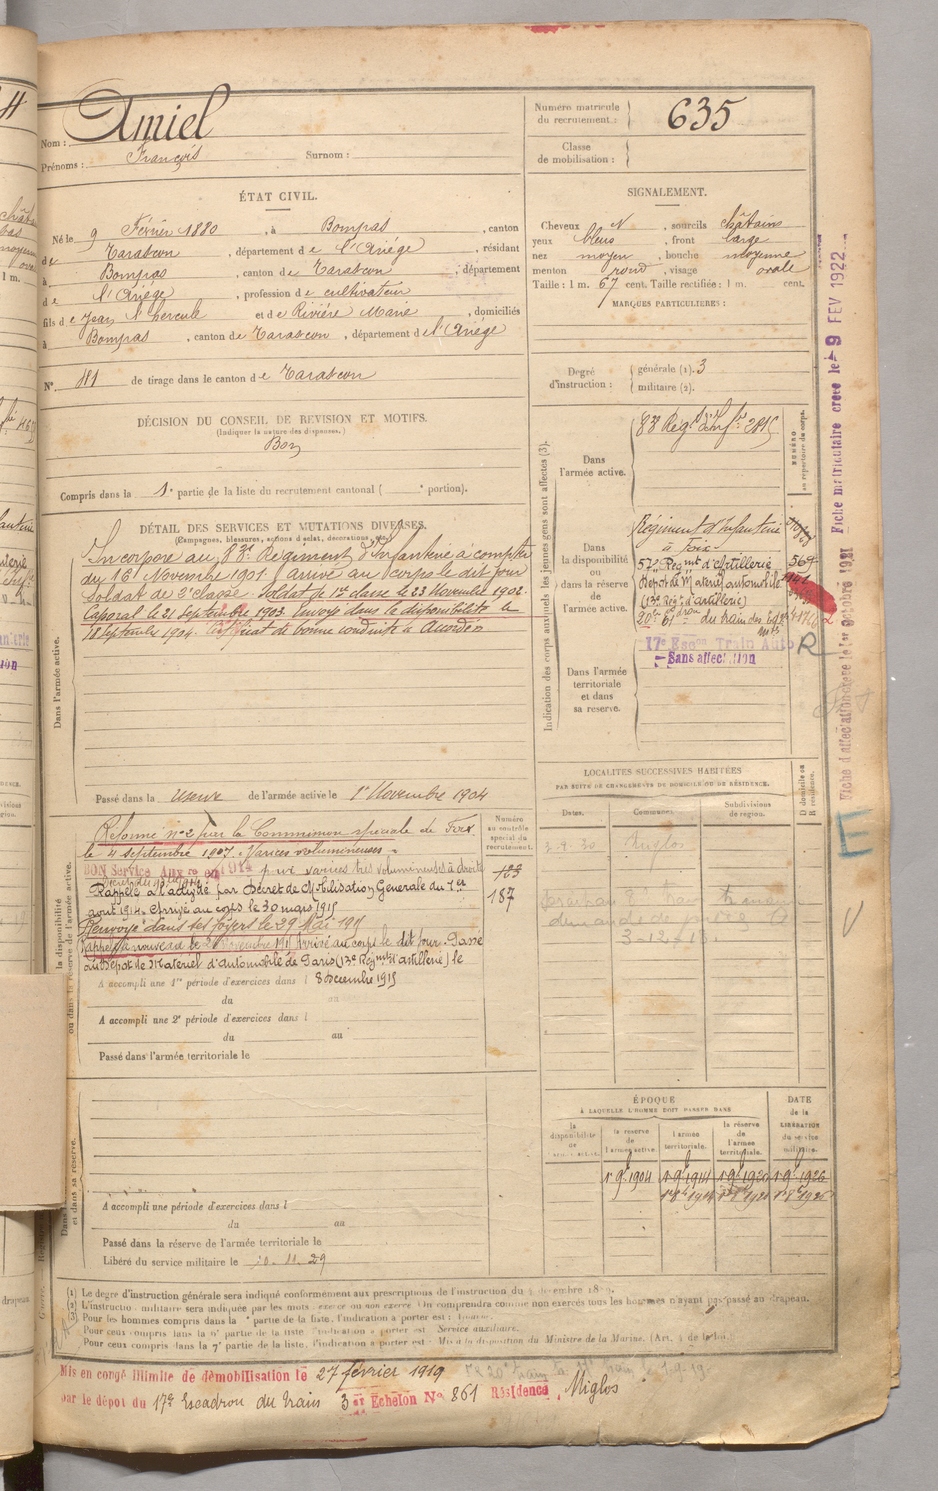 Nom : Amiel
Prénoms : François Surnom :
ÉTAT CIVIL.
Né le 9 Février 1880, à Bompas, canton
de Tarascon, département de l'Ariége, résidant
à Bompas, canton de Tarascon, département
de l'Ariége, profession de cultivateur
fils de Jean Hercule et de Rivière Marie, domiciliés
à Bompas, canton de Tarascon, département de l'Ariége
N° 181 de tirage dans le canton de Tarascon
DÉCISION DU CONSEIL DE REVISION ET MOTIFS.
(Indiquer la nature des dispenses.)
Bon
Compris dans la 1e partie de la liste du recrutement cantonal ( portion).
DÉTAIL DES SERVICES ET MUTATIONS DIVERSES.
(Campagnes, blessures, actions d'éclat, décorations, etc.)
Dans l'armée active.
Incorporé au 83e Régiment d'Infanterie à compter
du 16 Novembre 1901 arrivé au corps le dit jour
Soldat de 2e classe. Soldat de 1re classe le 23 Novembre 1902.
Caporal le 21 Septembre 1903. Envoyé dans la disponibilité le
18 Septembre 1904. Certificat de bonne conduite "Accordé"
Passé dans la réserve de l'armée active le 1er Novembre 1904
Réformé n°2 par la Commission spéciale de Foix
le 4 septembre 1907. Varices volumineuses.
BON Service Auxre en 1914 pour varices très volumineuses à droite
Rappelé à l'activité par Décret de Mobilisation Générale du 1er
août 1914. Arrivé au corps le 30 mars 1915
Renvoyé dans ses foyers le 29 Mai 1915
Rappelé à nouveau le Novembre 1915 Arrivé au corps le dit jour. Passé
au Dépôt de Matériel d'automobile de Paris (13e Régmt d'artillerie) le
8 Décembre 1915
A accompli une 1re période d'exercices dans l
du au
A accompli une 2e période d'exercices dans l
du au
Passé dans l'armée territoriale le
A accompli une période d'exercices dans l
du au
Passé dans la réserve de l'armée territoriale le
Libéré du service militaire le 10.11.29
Numéro
au contrôle
spécial du
recrutement.
123
187
Numéro matricule
du recrutement : 635
Classe
de mobilisation :
SIGNALEMENT.
Cheveux N, sourcils châtains
yeux bleus, front large
nez moyen, bouche moyenne
menton rond, visage ovale
Taille : 1 m. 67 cent. Taille rectifiée : 1 m. cent.
MARQUES PARTICULIÈRES :
Degré
d'instruction :
générale (1). 3
militaire (2).
Indication des corps auxquels les jeunes gens sont affectés (3).
NUMÉRO
au répertoire du corps.
Dans
l'armée active.
83e Régt d'Infrie 2815
Dans
la disponibilité
ou
dans la réserve
de
l'armée active.
Régiment d'Infanterie
à Foix
57e Régmt d'Artillerie 569
Dépôt de Matériel automobile
(13e Régt d'artillerie)
20e Escdron du train des Eqges
17e Escon Train Auto R
Sans affectation
Dans l'armée
territoriale
et dans
sa reserve.
LOCALITÉS SUCCESSIVES HABITÉES
PAR SUITE DE CHANGEMENTS DE DOMICILE OU DE RÉSIDENCE.
Dates. Communes. Subdivisions
de région.
D domicile ou
R résidence.
Miglos
ÉPOQUE
À LAQUELLE L'HOMME DOIT PASSER DANS
la
disponibilité
la réserve
de
l'armée active.
l'armée
territoriale.
la réserve
de
l'armée
territoriale.
DATE
de la
LIBÉRATION
du service
militaire.
1er 9bre 1904 1er 9bre 1914 1er 9bre 1920 1er 9bre 1926
Fiche matriculaire créée le 9 FEV 1922
Fiche d'affectation créée le 1er Octobre 1921
(1) Le degré d'instruction générale sera indiqué conformément aux prescriptions de l'instruction du
(2) L'instruction militaire sera indiquée par les mots : exercé ou non exercé. On comprendra comme non exercés tous les hommes n'ayant pas passé au drapeau.
(3) Pour les hommes compris dans la partie de la liste, l'indication à porter est :
Pour ceux compris dans la partie de la liste l'indication à porter est : Service auxiliaire.
Pour ceux compris dans la 7e partie de la liste, l'indication à porter est : Mis à la disposition du Ministre de la Marine.
Mis en congé illimité de démobilisation le 27 février 1919
par le dépôt du 17e Escadron du Train 3e Echelon N° 861 Résidence, Miglos